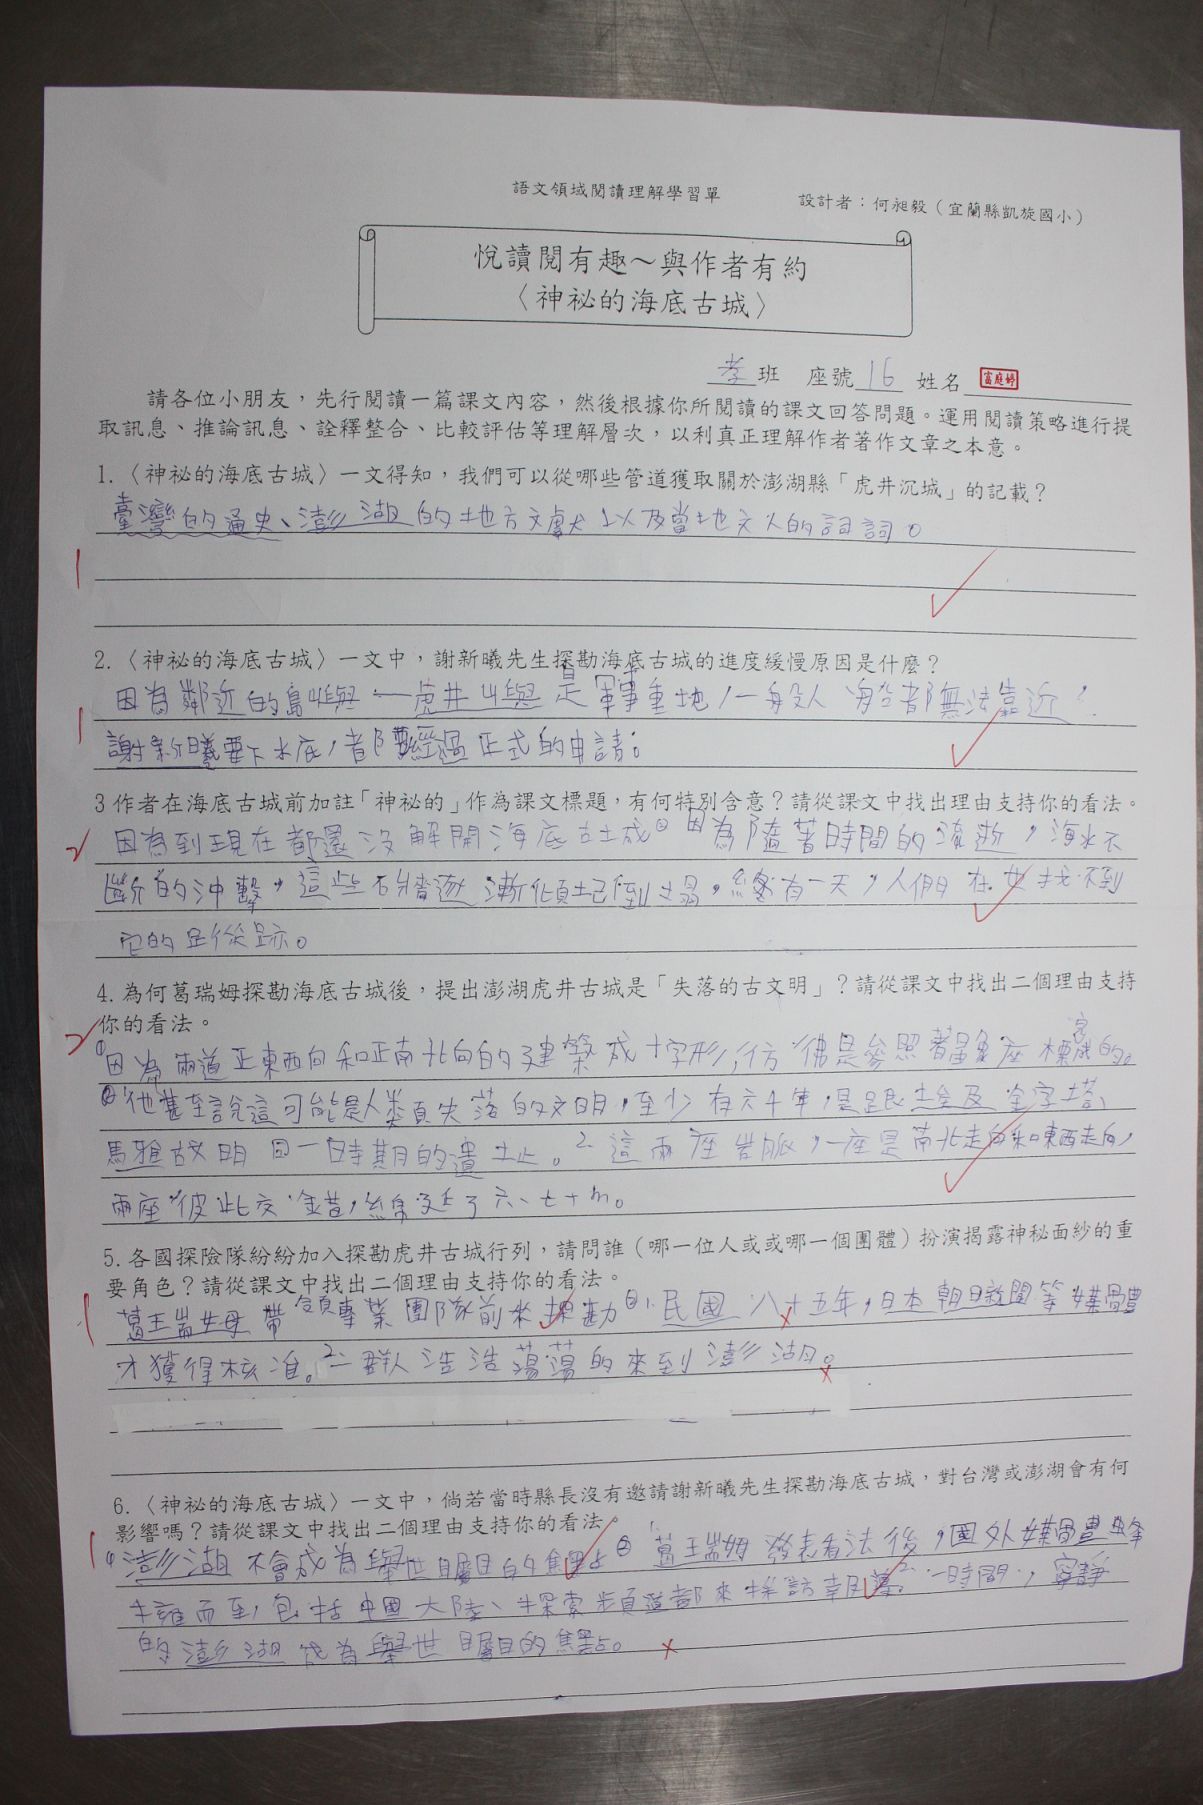 語文領域閱讀理解學習單
設計者：何昶毅（宜蘭縣凱旋國小）
悅讀閱有趣～與作者有約
〈神祕的海底古城〉
孝班 座號16 姓名 富庭婷
請各位小朋友，先行閱讀一篇課文內容，然後根據你所閱讀的課文回答問題。運用閱讀策略進行提
取訊息、推論訊息、詮釋整合、比較評估等理解層次，以利真正理解作者著作文章之本意。
1.〈神祕的海底古城〉一文得知，我們可以從哪些管道獲取關於澎湖縣「虎井沉城」的記載？
臺灣的通史、澎湖的地方文獻以及當地文人的詞。
2.〈神祕的海底古城〉一文中，謝新曦先生探勘海底古城的進度緩慢原因是什麼？
因為鄰近的島嶼一虎井嶼是軍事重地，一般人船都無法靠近，
謝新曦要下水底，都要經過正式的申請。
3 作者在海底古城前加註「神祕的」作為課文標題，有何特別含意？請從課文中找出理由支持你的看法。
因為到現在都還沒解開海底古城②因為隨著時間的流逝，海水不
斷的沖擊，這些石牆逐漸傾圮倒塌，終有一天，人們在也找不到
它的蹤跡。
4.為何葛瑞姆探勘海底古城後，提出澎湖虎井古城是「失落的古文明」？請從課文中找出二個理由支持
你的看法。
①因為兩道正東西向和正南北向的建築成十字形，彷彿是參照著星象座標的。
②他甚至說這可能是人類頁失落的文明，至少有六千年，是跟埃及金字塔、
馬雅古文明同一時期的遺址。2.這兩座岩脈，一座是南北走向和東西走向，
兩座彼此交錯，綿延了六、七十m。
5.各國探險隊紛紛加入探勘虎井古城行列，請問誰（哪一位人或或哪一個團體）扮演揭露神秘面紗的重
要角色？請從課文中找出二個理由支持你的看法。
葛瑞姆帶領專業團隊前來探勘②1.民國八十五年，日本朝日新聞等媒體
才獲得核准。2.一群人浩浩蕩蕩的來到澎湖。
6.〈神祕的海底古城〉一文中，倘若當時縣長沒有邀請謝新曦先生探勘海底古城，對台灣或澎湖會有何
影響嗎？請從課文中找出二個理由支持你的看法。
①澎湖不會成為舉世矚目的焦點②1.葛瑞姆發表看法後，國外媒體蜂
擁而到，包括中國大陸、探索頻道都來採訪報導。2.一時間，寧靜
的澎湖成為舉世矚目的焦點。